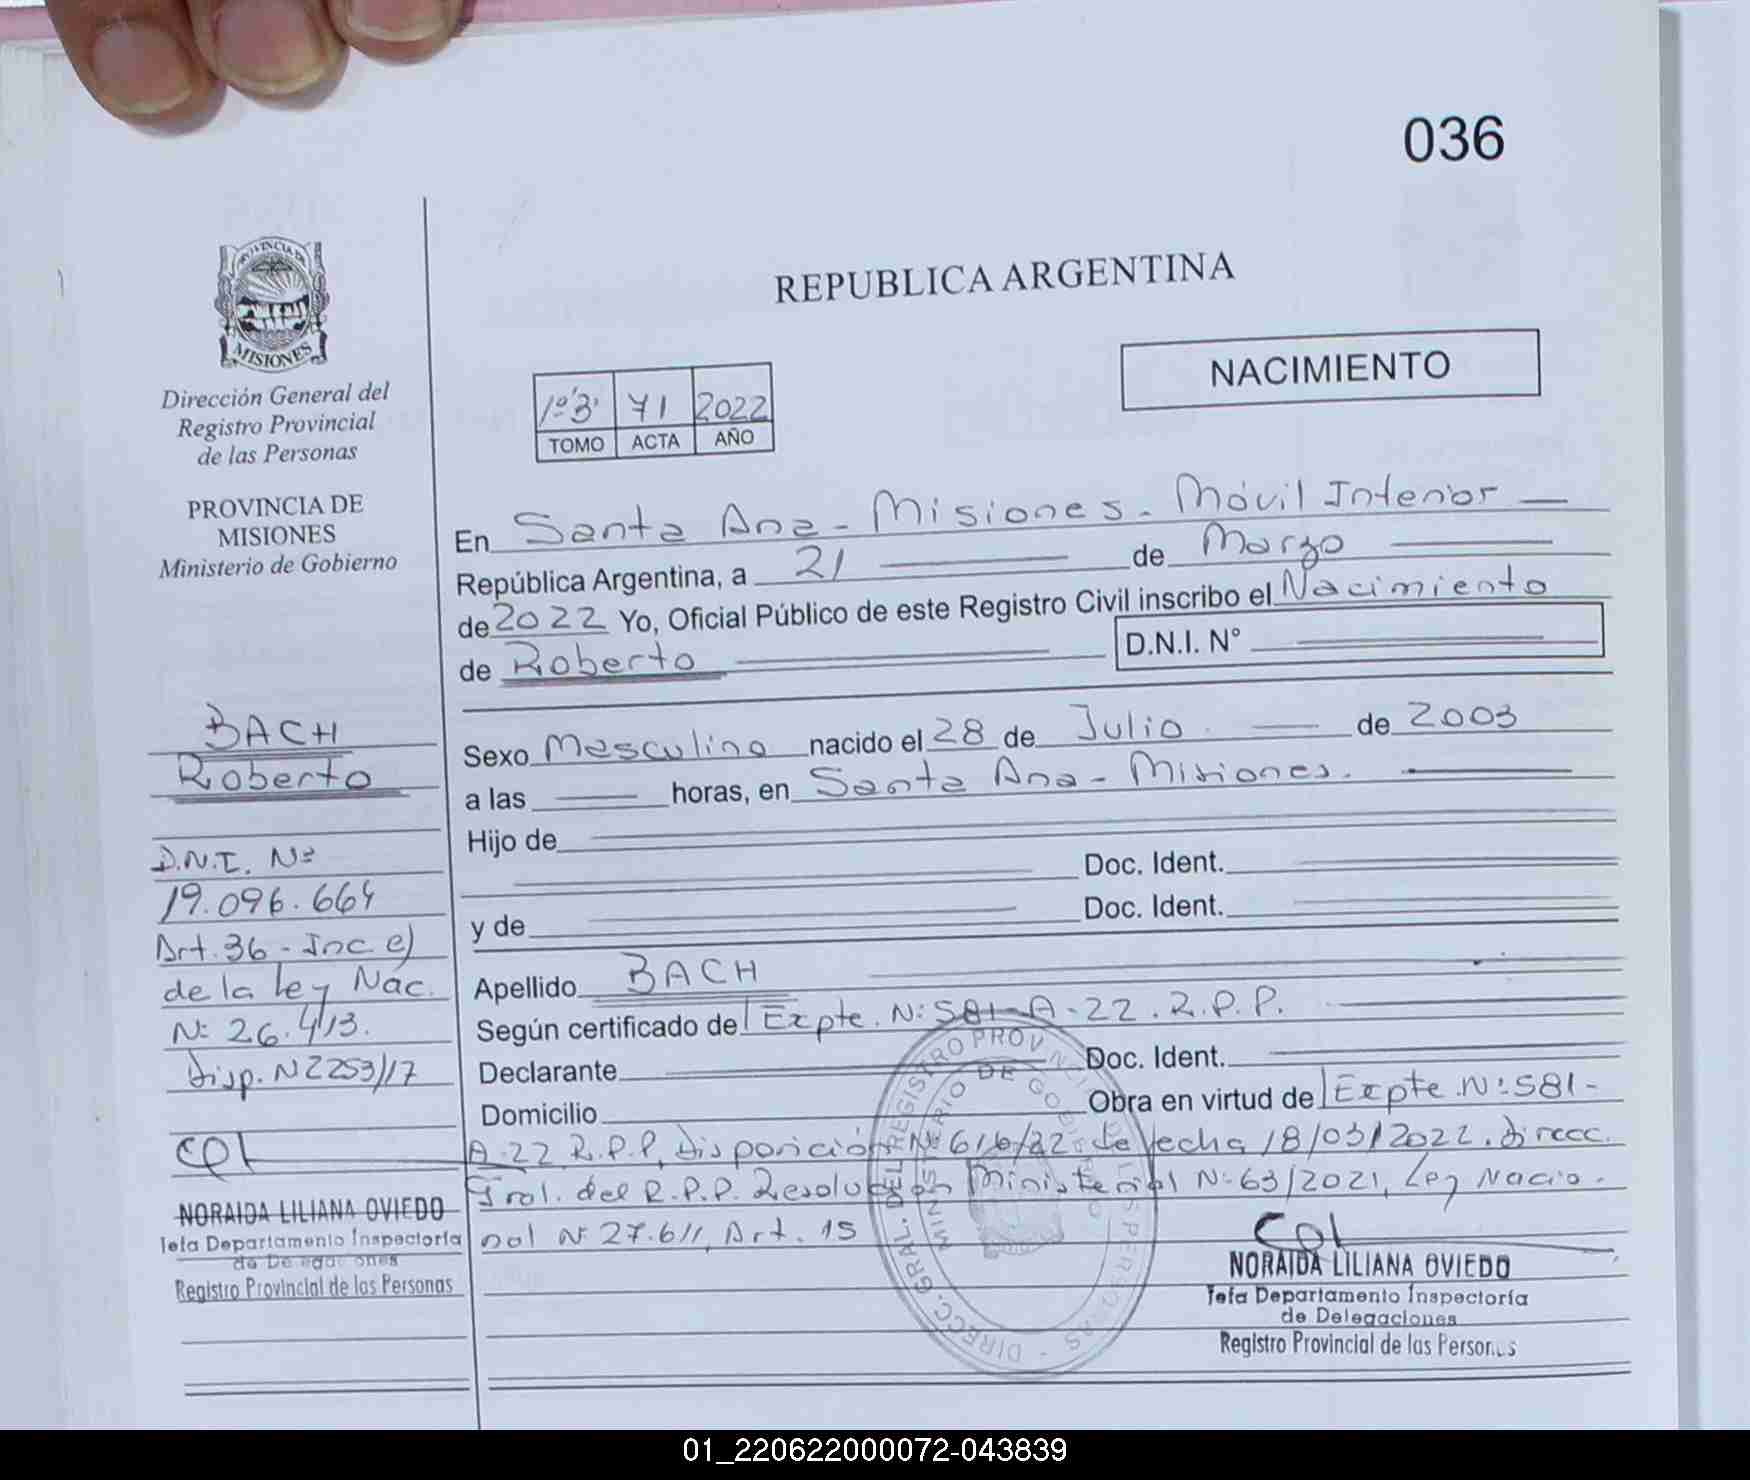 036
PROVINCIA DE
MISIONES
Dirección General del
Registro Provincial
de las Personas
PROVINCIA DE
MISIONES
Ministerio de Gobierno
BACH
Roberto
D.N.I. Nº
19.096.664
Art. 36 - Inc. e)
de la Ley Nac.
Nº 26.413.
Disp. N 2253/17
NORAIDA LILIANA OVIEDO
Jefa Departamento Inspectoría
de Delegaciones
Registro Provincial de las Personas
REPUBLICA ARGENTINA
NACIMIENTO
1º"3" 71 2022
TOMO ACTA AÑO
En Santa Ana - Misiones - Móvil Interior
República Argentina, a 21 de Marzo
de 2022 Yo, Oficial Público de este Registro Civil inscribo el Nacimiento
de Roberto D.N.I. N°
Sexo Masculino nacido el 28 de Julio de 2003
a las horas, en Santa Ana - Misiones.
Hijo de
Doc. Ident.
y de Doc. Ident.
Apellido BACH
Según certificado de Expte. Nº 581-A-22. R.P.P.
Declarante Doc. Ident.
Domicilio Obra en virtud de Expte. Nº 581-
A-22 R.P.P, Disposición Nº 616/22 de fecha 18/03/2022. Direcc.
Gral. del R.P.P. Resolución Ministerial Nº 63/2021, Ley Nacio-
nal Nº 27.611, Art. 15
DIRECC. GRAL. DEL REGISTRO PROVINCIAL DE LAS PERSONAS
MINISTERIO DE GOBIERNO
NORAIDA LILIANA OVIEDO
Jefa Departamento Inspectoría
de Delegaciones
Registro Provincial de las Personas
01_220622000072-043839